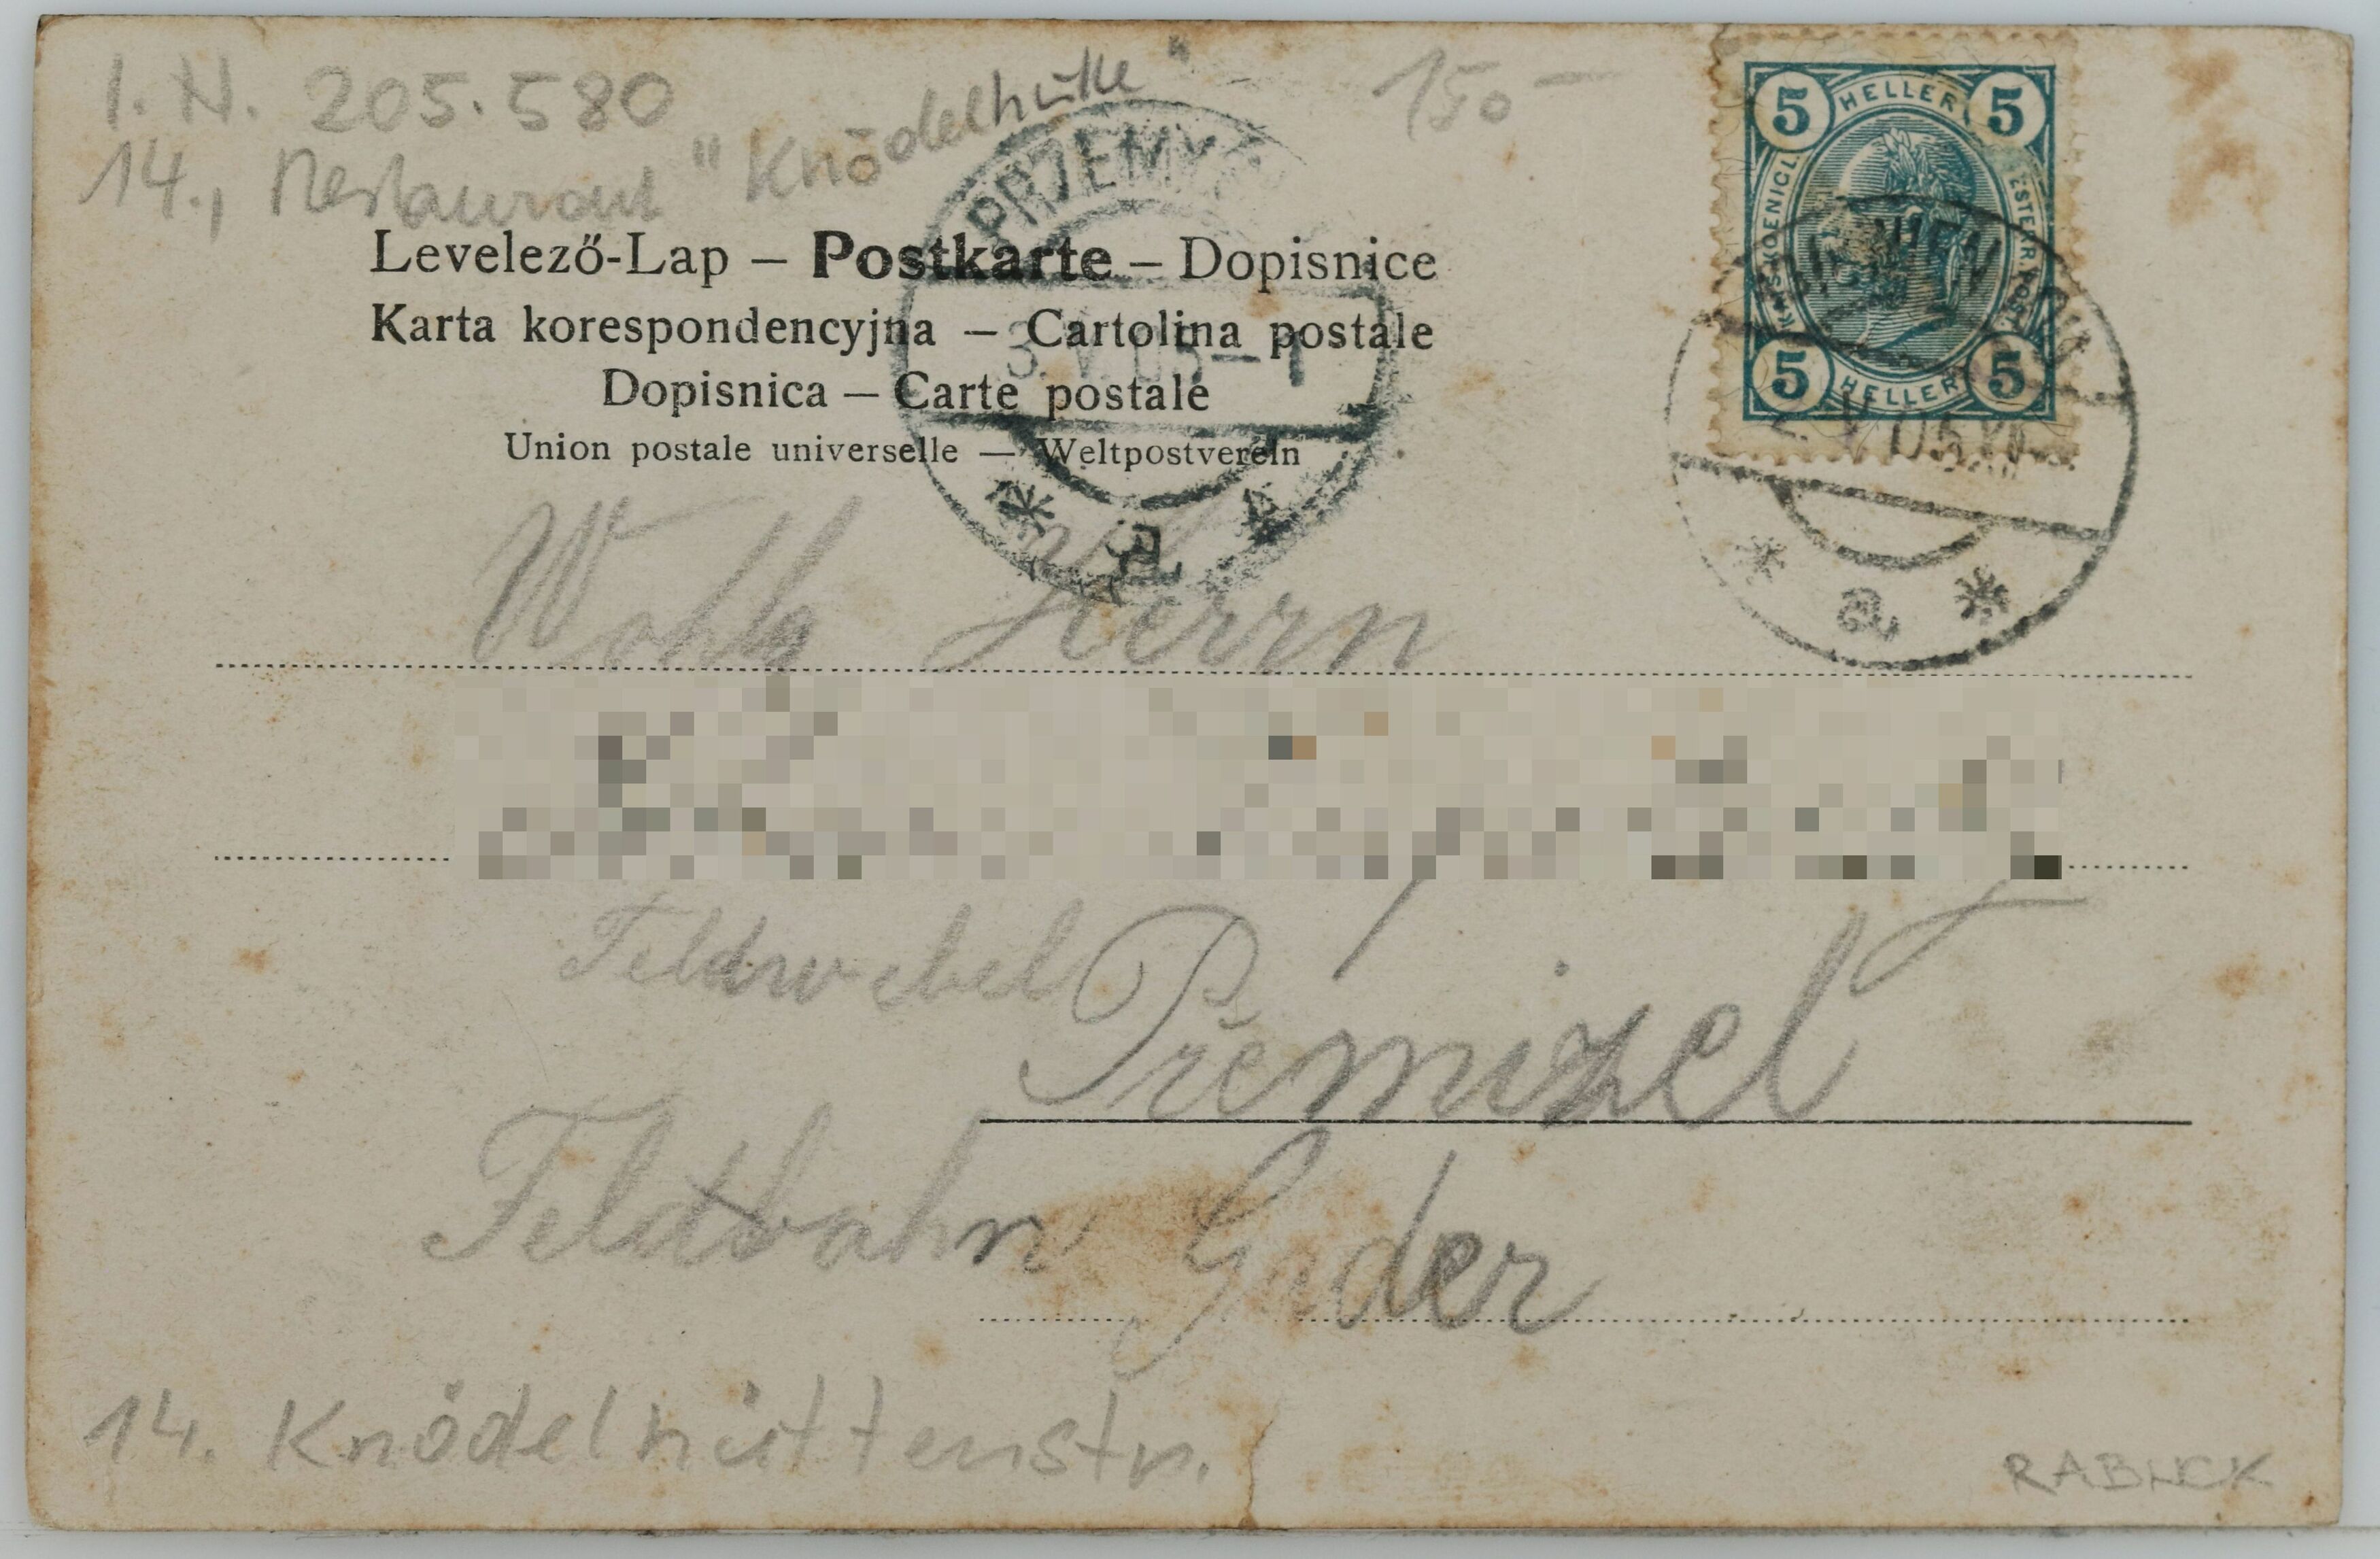 I. N. 205.580
14., Restaurant "Knödelhütte"
150 —
5 HELLER 5
KAIS. KOENIGL. ÖSTERR. POST
5 HELLER 5
PRZEMY
3. V. 05 — 1
* a *
WIEN
2. V 05
* a *
Levelező-Lap – Postkarte – Dopisnice
Karta korespondencyjna – Cartolina postale
Dopisnica – Carte postale
Union postale universelle — Weltpostverein
Wohlg Herrn
Feldwebel
Přemizel
Feldbahn
14. Knödelhüttenstr.